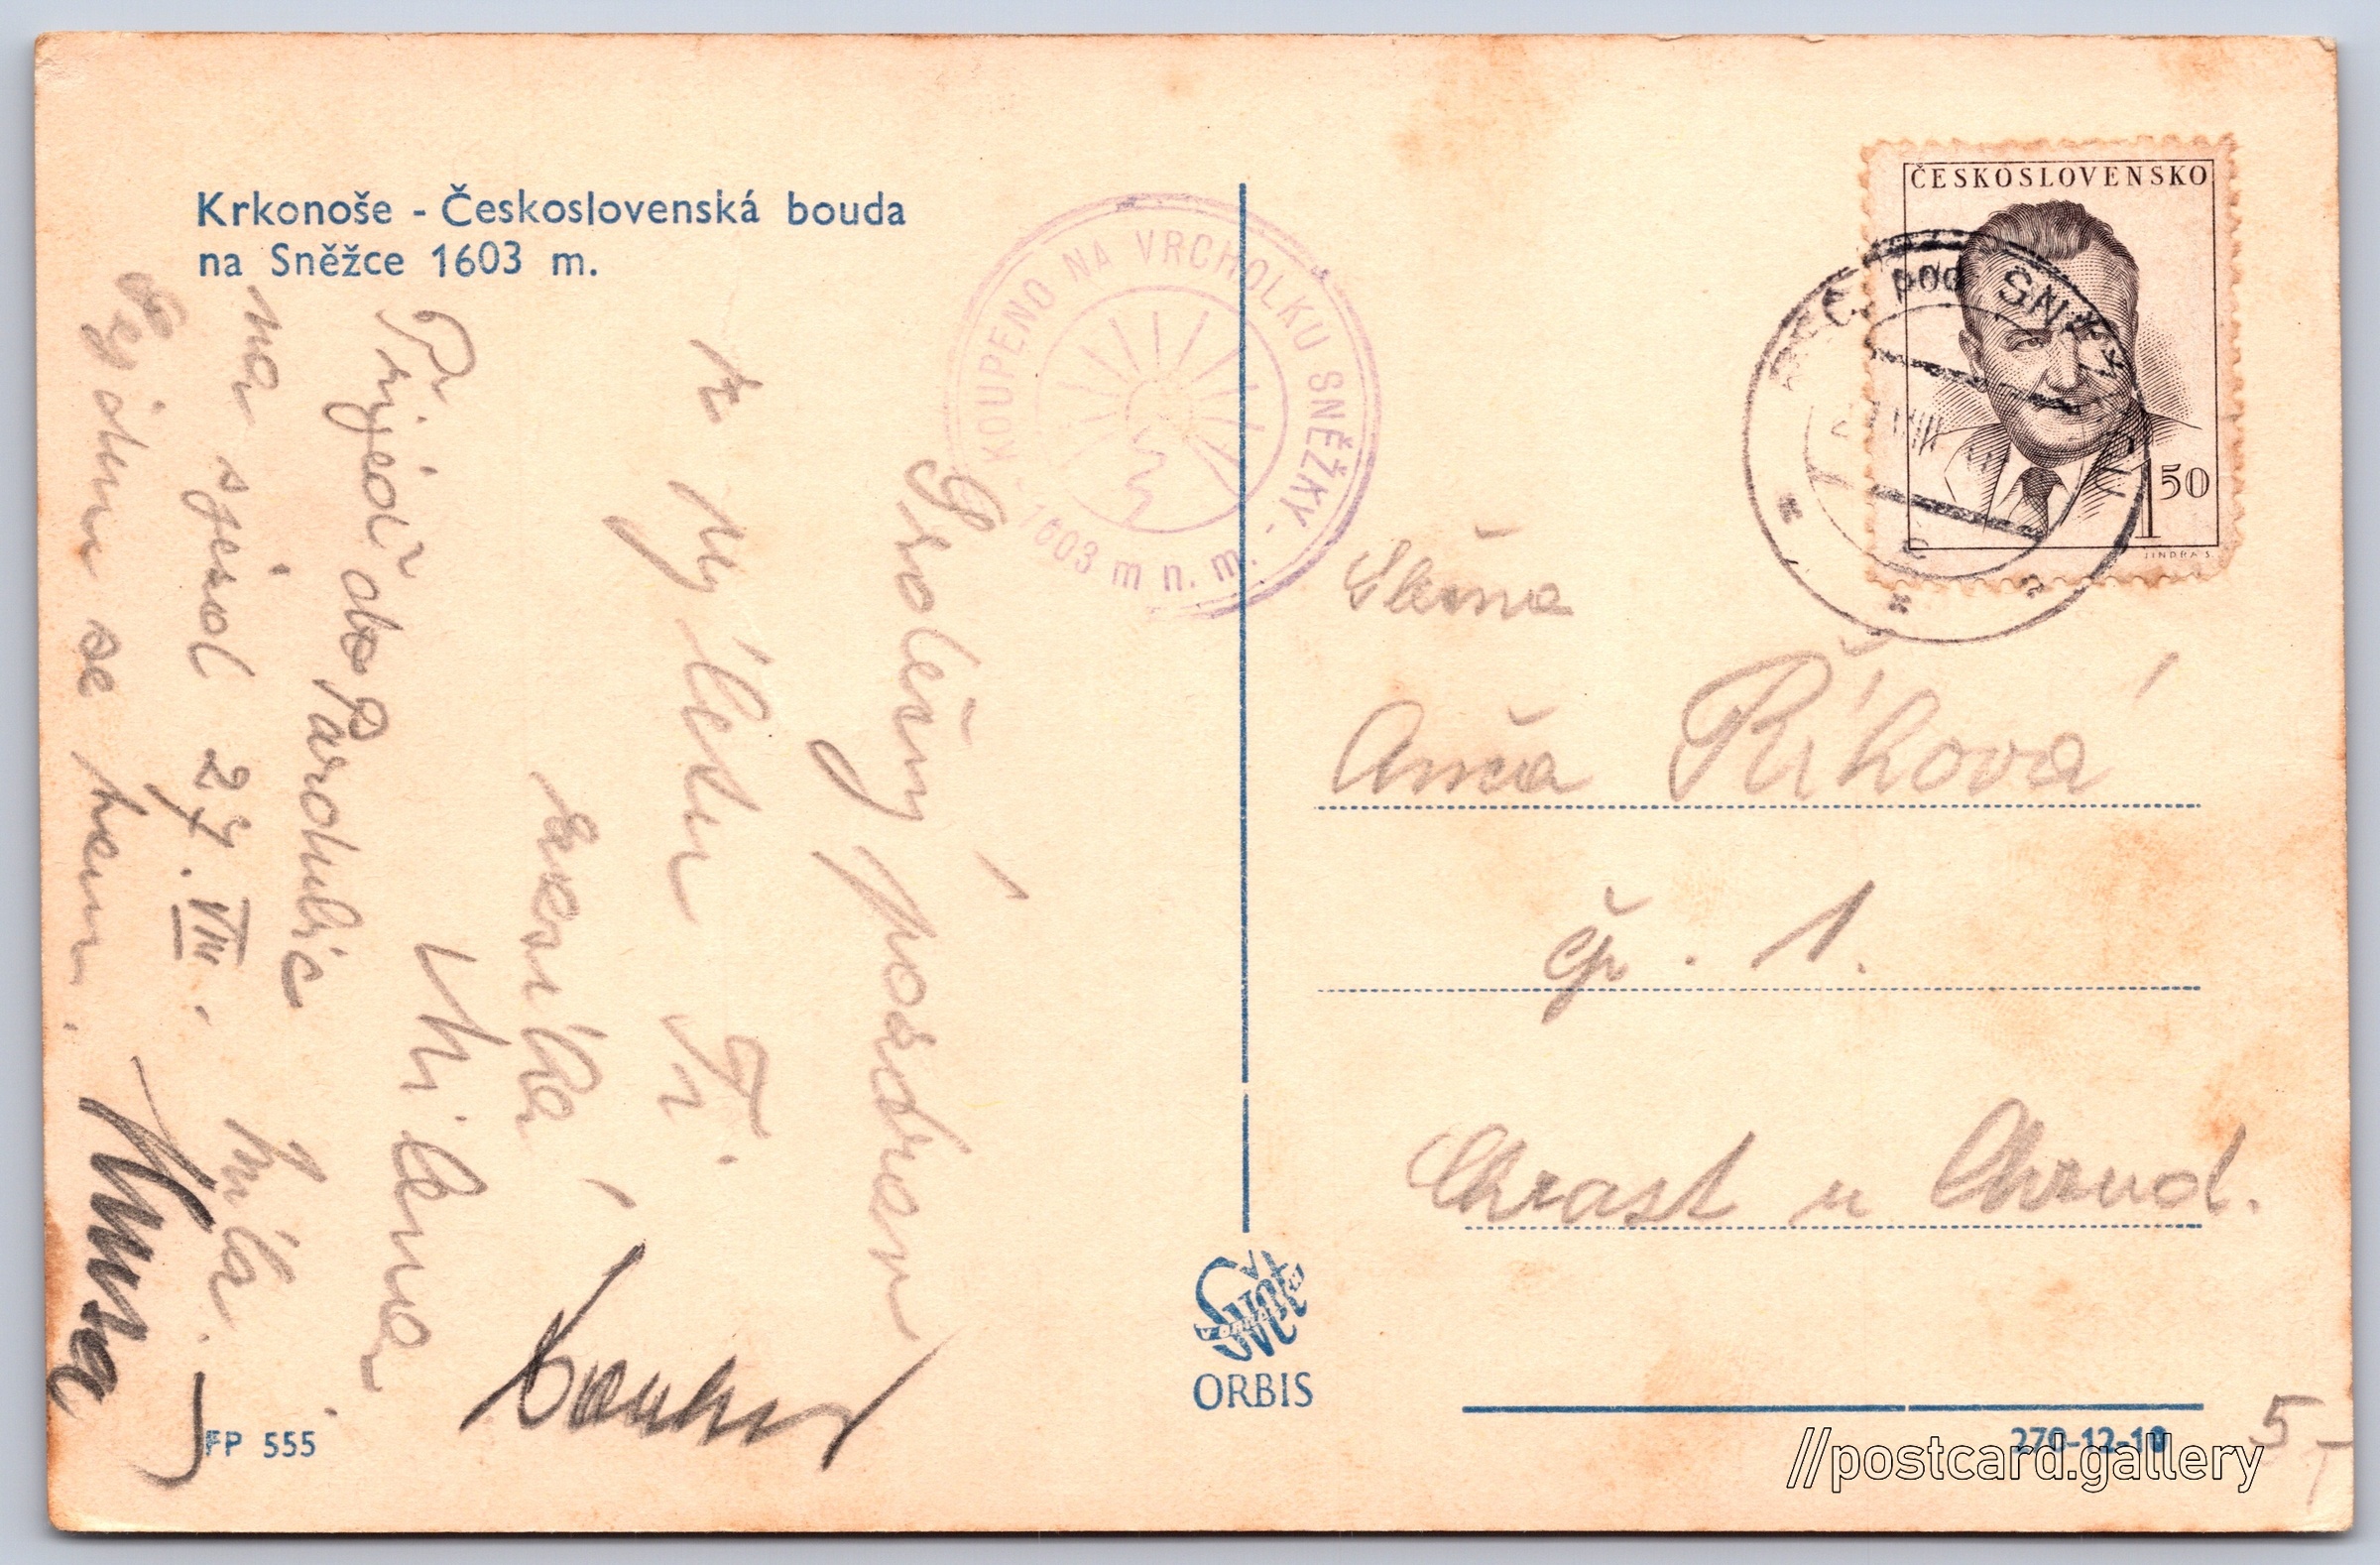 Krkonoše - Československá bouda
na Sněžce 1603 m.
KOUPENO NA VRCHOLKU SNĚŽKY -
1603 m n. m. -
ČESKOSLOVENSKO
1 50
JINDRA S.
pod SNĚŽ
Srdečný pozdrav
z výletu Ti
Milena
Přijeď do Pardubic
na sjezd 27. VIII.
se tam.
Slečna
Anča Říhová
čp. 1.
Chrast u Chrud.
Svět
v obrazech
ORBIS
FP 555
270-12-1
5-
//postcard.gallery